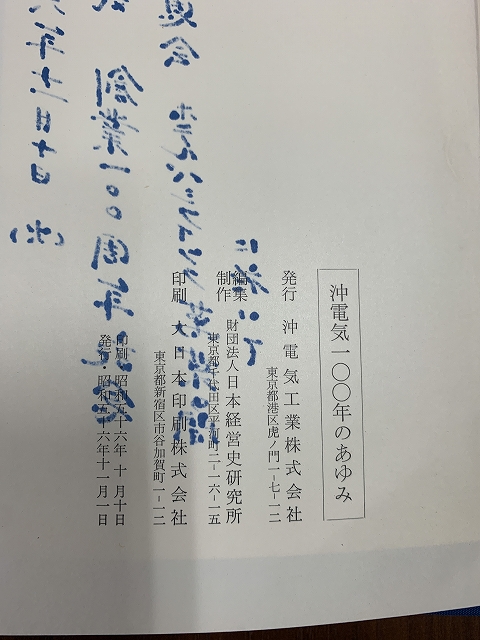 沖電気一〇〇年のあゆみ
発行 沖電気工業株式会社
東京都港区虎ノ門一-七-一二
編集
制作 財団法人日本経営史研究所
東京都千代田区平河町二-一六-一五
印刷 大日本印刷株式会社
東京都新宿区市谷加賀町一-一二
印刷・昭和五十六年十月十日
発行・昭和五十六年十一月一日
にて
創業一〇〇周年
年十一月十日